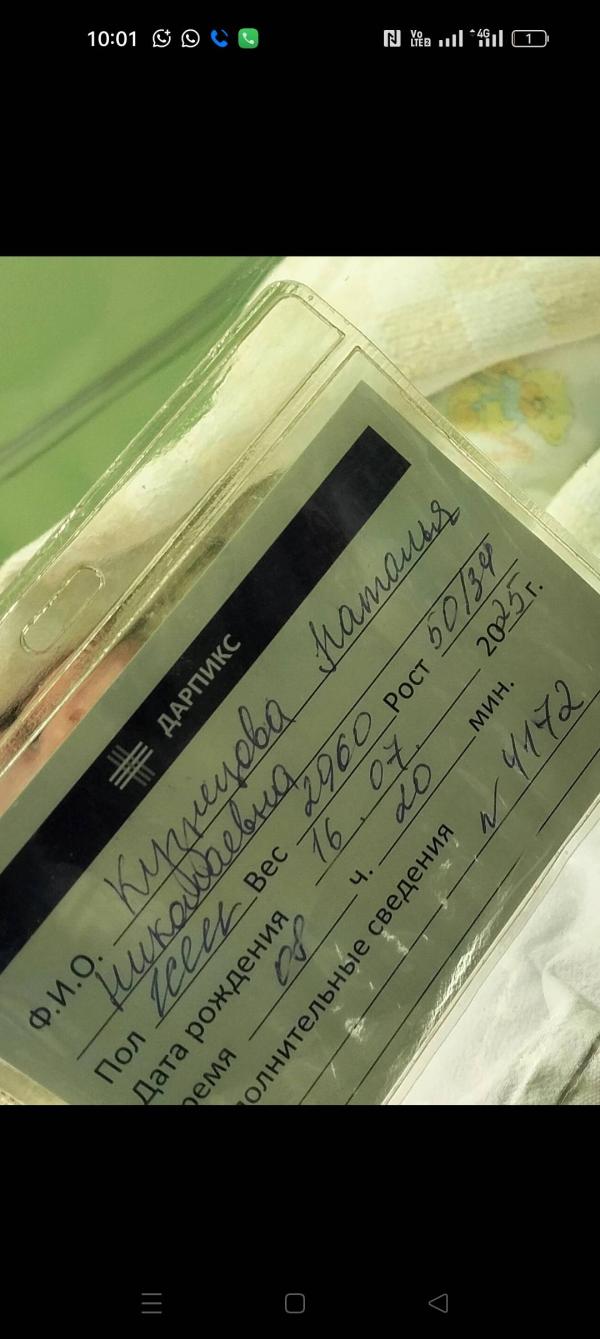 10:01
Vo LTE2 4G 1
ДАРПИКС
Ф.И.О. Кузнецова Наталья
Николаевна
Пол жен Вес 2960 Рост 50/34
Дата рождения 16. 07. 2025г.
ремя 08 ч. 20 мин.
полнительные сведения N 4172